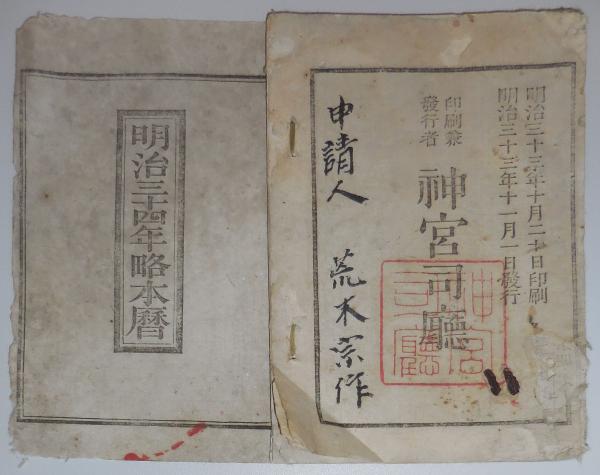 明治三十三年十月二十日印刷
明治三十三年十一月一日發行
印刷兼
發行者
神宮司廳
申請人 荒木宗作
神宮
司廳
明治三十四年略本暦